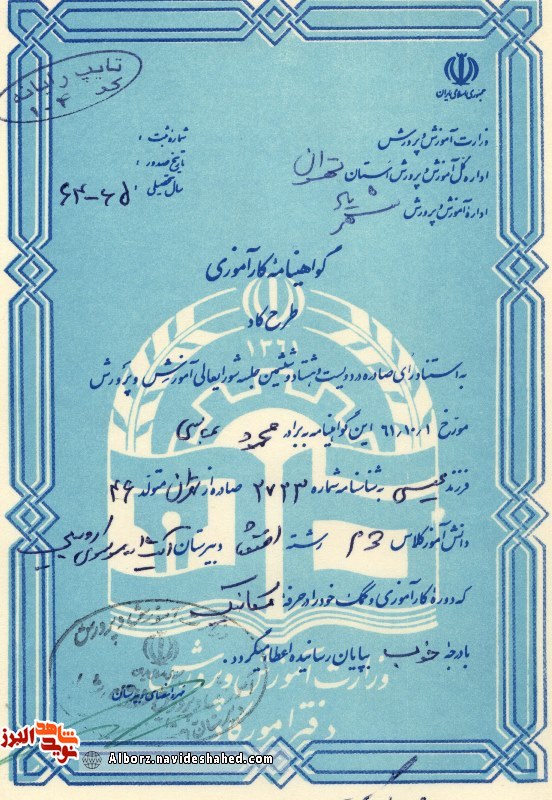 جمهوری اسلامی ایران
تایپ رایانه
کد ۴-۱۰
وزارت آموزش و پرورش
اداره کل آموزش و پرورش استان تهران
اداره آموزش و پرورش
شماره ثبت :
تاریخ صدور :
سال تحصیلی : ۶۵-۶۴
گواهینامه کارآموزی
طرح کاد
۱۳۶۱
به استناد رای صادره در دویست و هشتاد و ششمین جلسه شورایعالی آموزش و پرورش
مورخ ۶۱/۱۰/۱ این گواهینامه به برادر محمود عباسی
فرزند عیسی به شناسنامه شماره ۲۷۳۳ صادره از تهران متولد ۴۶
دانش آموز کلاس دوم رشته اقتصاد دبیرستان آیت الله
که دوره کارآموزی و کمک خود را در حرفه مکانیک
با درجه خوب بپایان رسانیده اعطا میگردد.
مهر و امضای دبیرستان
وزارت آموزش و پرورش
دفتر امور کاد
نوید شاهد البرز
Alborz.navideshahed.com